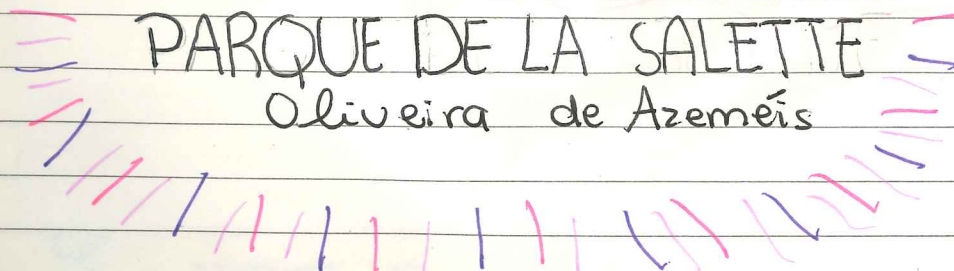 PARQUE DE LA SALETTE
Oliveira de Azeméis